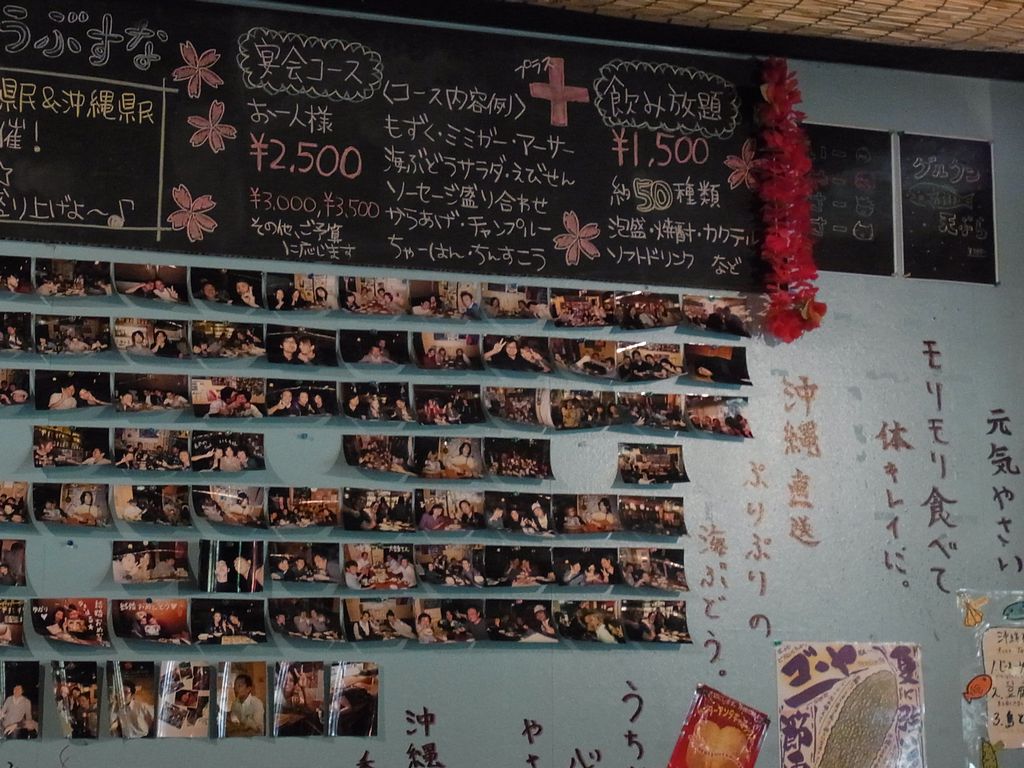 うぶすな
県民&沖縄県民
催!
り上げよ〜♪
宴会コース
お一人様
¥2.500
¥3,000,¥3,500
その他、ご予算
に応じます
〈コース内容例〉
もずく・ミミガー・アーサー
海ぶどうサラダ・えびせん
ソーセージ盛り合わせ
からあげ・チャンプルー
ちゃーはん・ちんすこう
プラス
+
飲み放題
¥1,500
約50種類
泡盛・焼酎・カクテル
ソフトドリンク など
グルクン
天ぷら
元気やさい
モリモリ食べて
体キレイに。
沖縄直送
ぷりぷりの
海ぶどう。
うち
やさ
沖縄
ゴーヤー
節
夏に